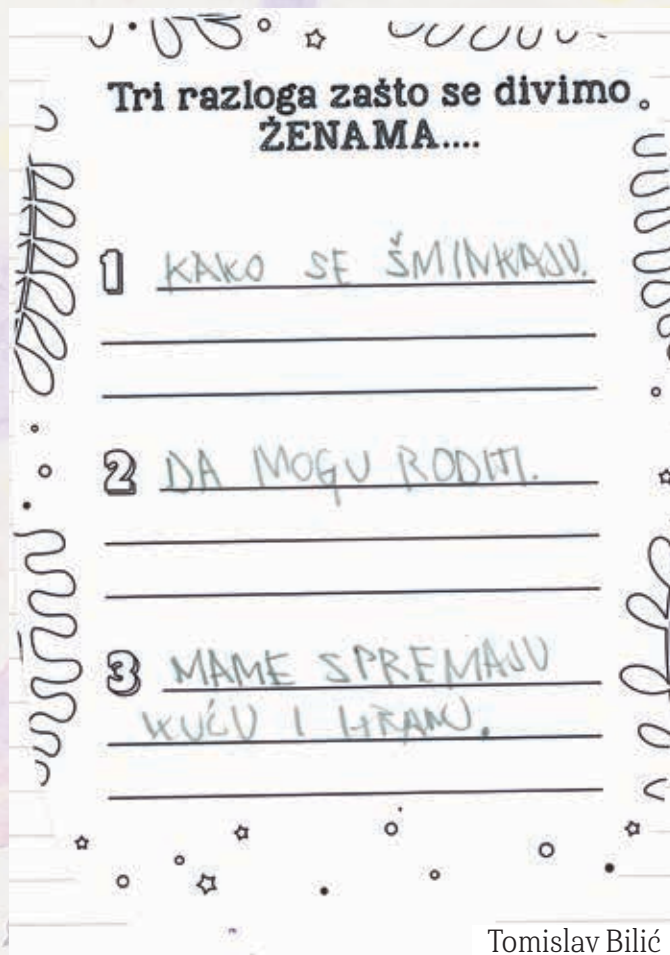 Tri razloga zašto se divimo
ŽENAMA....
1 KAKO SE ŠMINKAJU.
2 DA MOGU RODITI.
3 MAME SPREMAJU
KUĆU I HRANU.
Tomislav Bilić